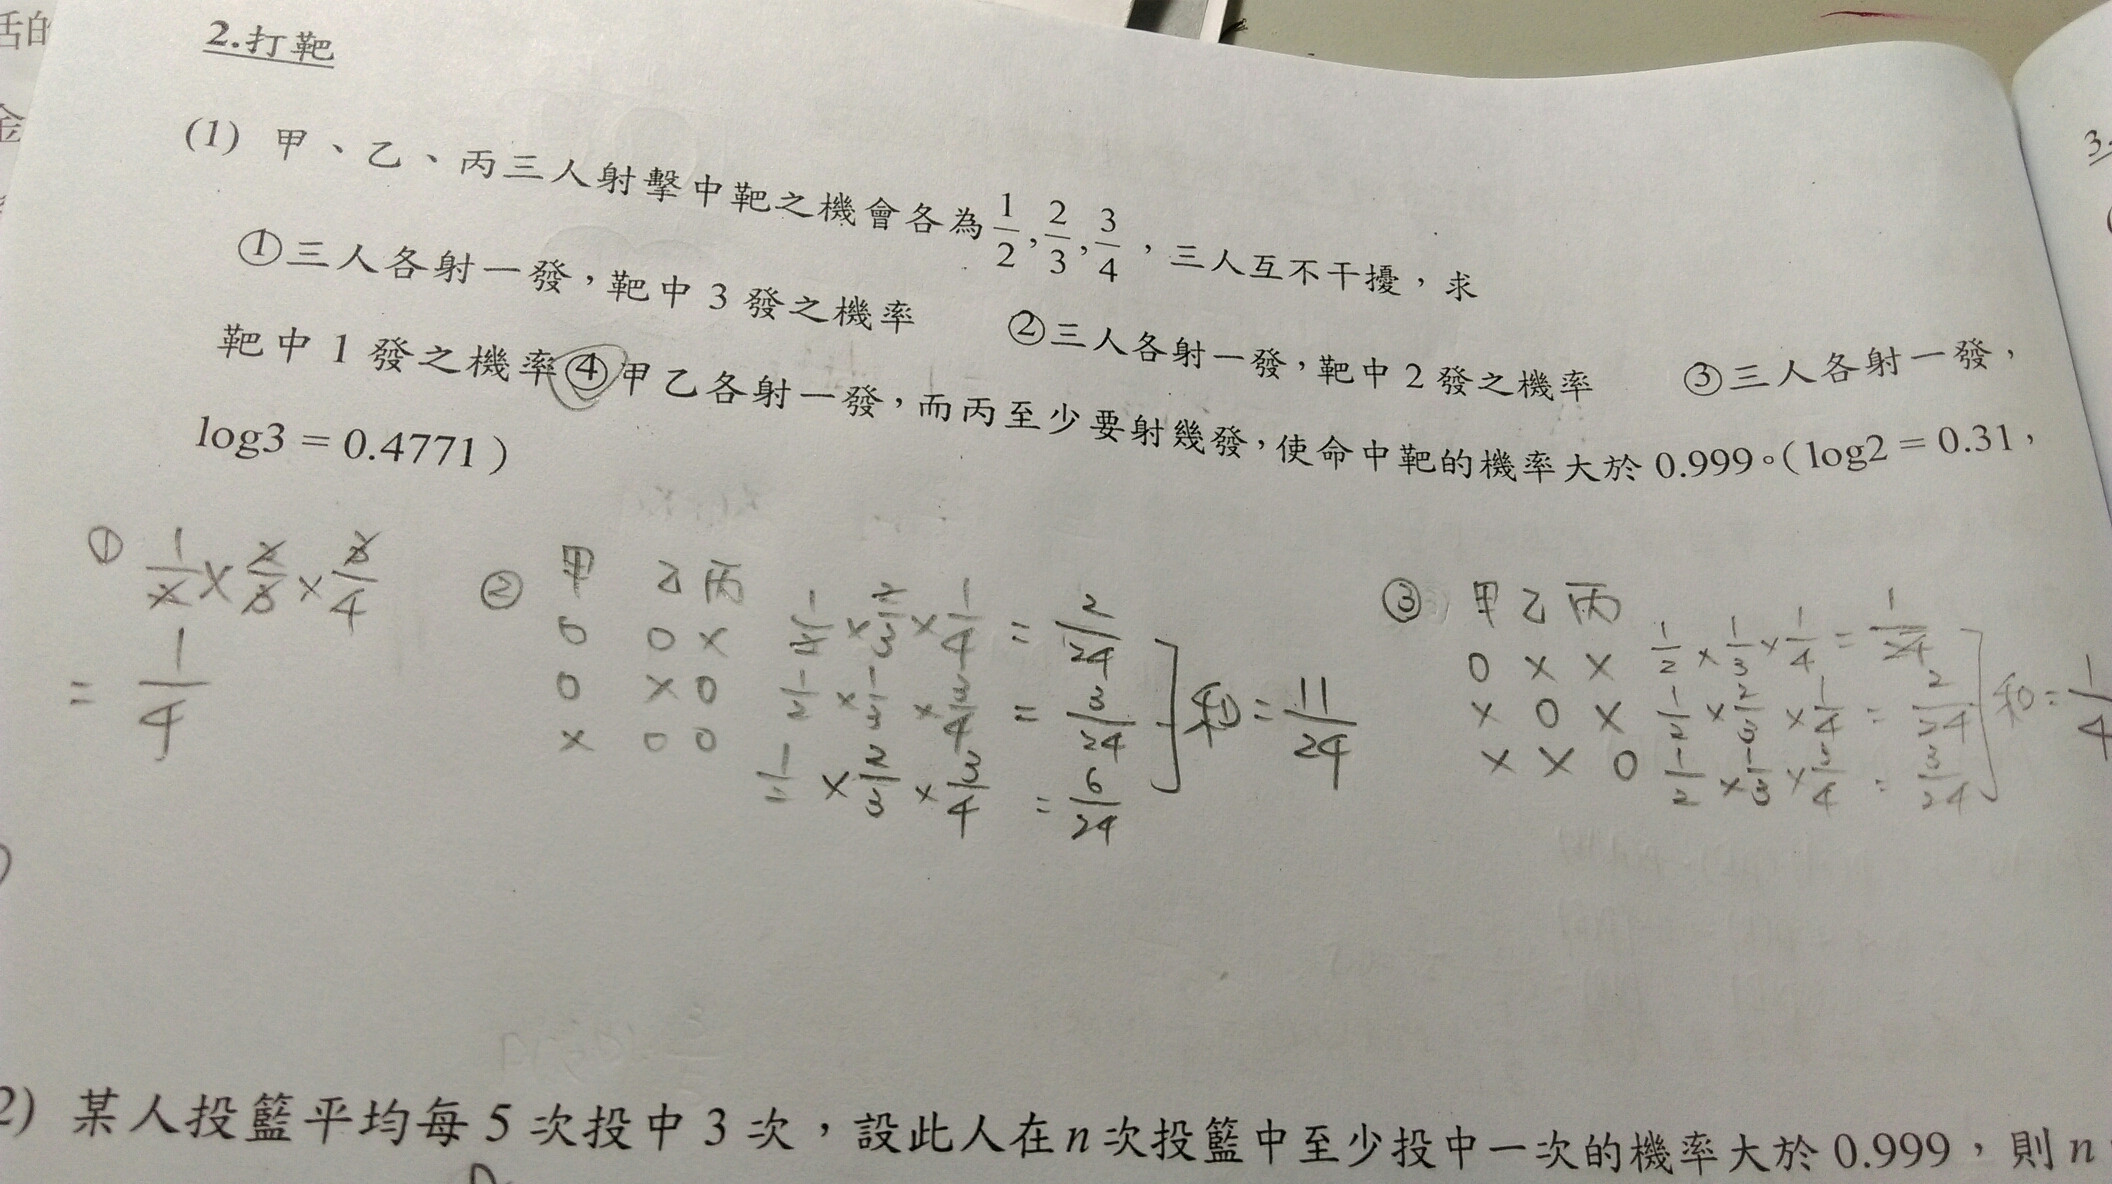 活的
金
2.打靶
3.
(1) 甲、乙、丙三人射擊中靶之機會各為 1/2, 2/3, 3/4，三人互不干擾，求
①三人各射一發，靶中 3 發之機率 ②三人各射一發，靶中 2 發之機率 ③三人各射一發，
靶中 1 發之機率 ④甲乙各射一發，而丙至少要射幾發，使命中靶的機率大於 0.999。( log2 = 0.31，
log3 = 0.4771 )
① 1/2 × 2/3 × 3/4
= 1/4
② 甲 乙 丙
O O × 1/2 × 2/3 × 1/4 = 2/24
O × O 1/2 × 1/3 × 3/4 = 3/24
× O O 1/2 × 2/3 × 3/4 = 6/24
和 = 11/24
③ 甲 乙 丙
O × × 1/2 × 1/3 × 1/4 = 1/24
× O × 1/2 × 2/3 × 1/4 = 2/24
× × O 1/2 × 1/3 × 3/4 = 3/24
和 = 1/4
2) 某人投籃平均每 5 次投中 3 次，設此人在 n 次投籃中至少投中一次的機率大於 0.999，則 n